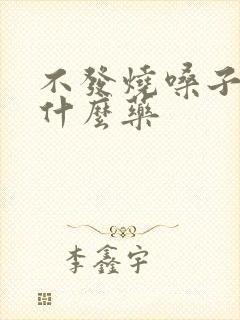 不發燒嗓子
什麼藥
李鑫宇